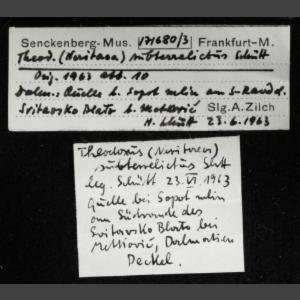 Senckenberg-Mus. 171680/3 Frankfurt-M.
Theod. (Neritaea) subterrelictus Schütt
Orig. 1963 Abb. 10
Dalm.: Quelle b. Sopot mlin am S-Rand d.
Svitavsko Blato b. Metković Slg. A. Zilch
H. Schütt 23.6.1963
Theodoxus (Neritaea)
subterrelictus Schtt
leg. Schütt 23. VI. 1963
Quelle bei Sopot mlin
am Südrande des
Svitavsko Blato bei
Metković, Dalmatien
Deckel.